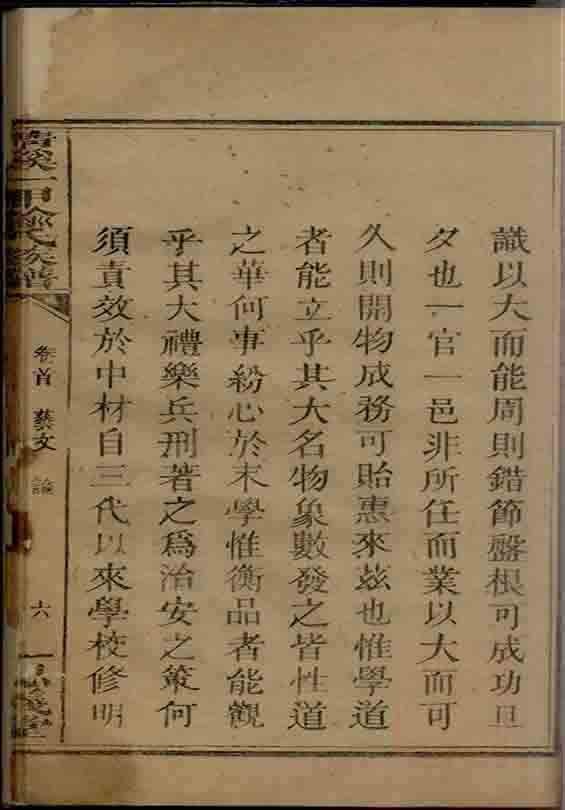 識以大而能周則錯節盤根可成功旦
夕也一官一邑非所任而業以大而可
久則開物成務可貽惠來茲也惟學道
者能立乎其大名物象數發之皆性道
之華何事紛心於末學惟衡品者能觀
乎其大禮樂兵刑著之為治安之策何
須責效於中材自三代以來學校修明
一甲徐氏族譜
卷首 藝文 論
六